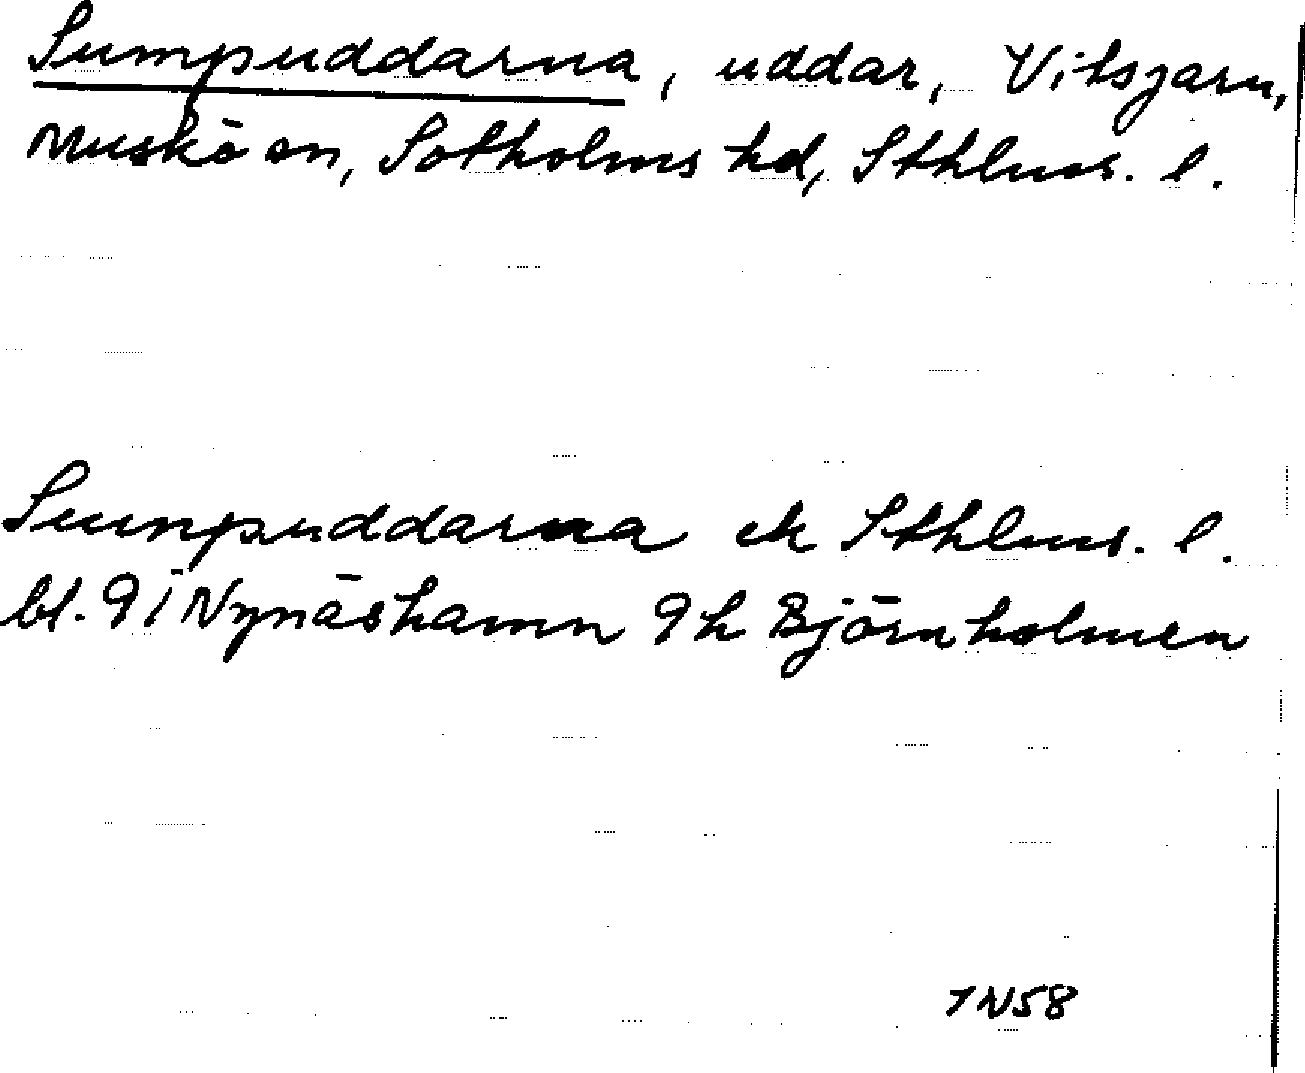 Sumpuddarna, uddar, Vitsjarn,
Muskö sn, Sotholms hd, Sthlms. l.
Sumpuddarna ek Sthlms. l.
bl. 9 i Nynäshamn 9h Björnholmen
7N58